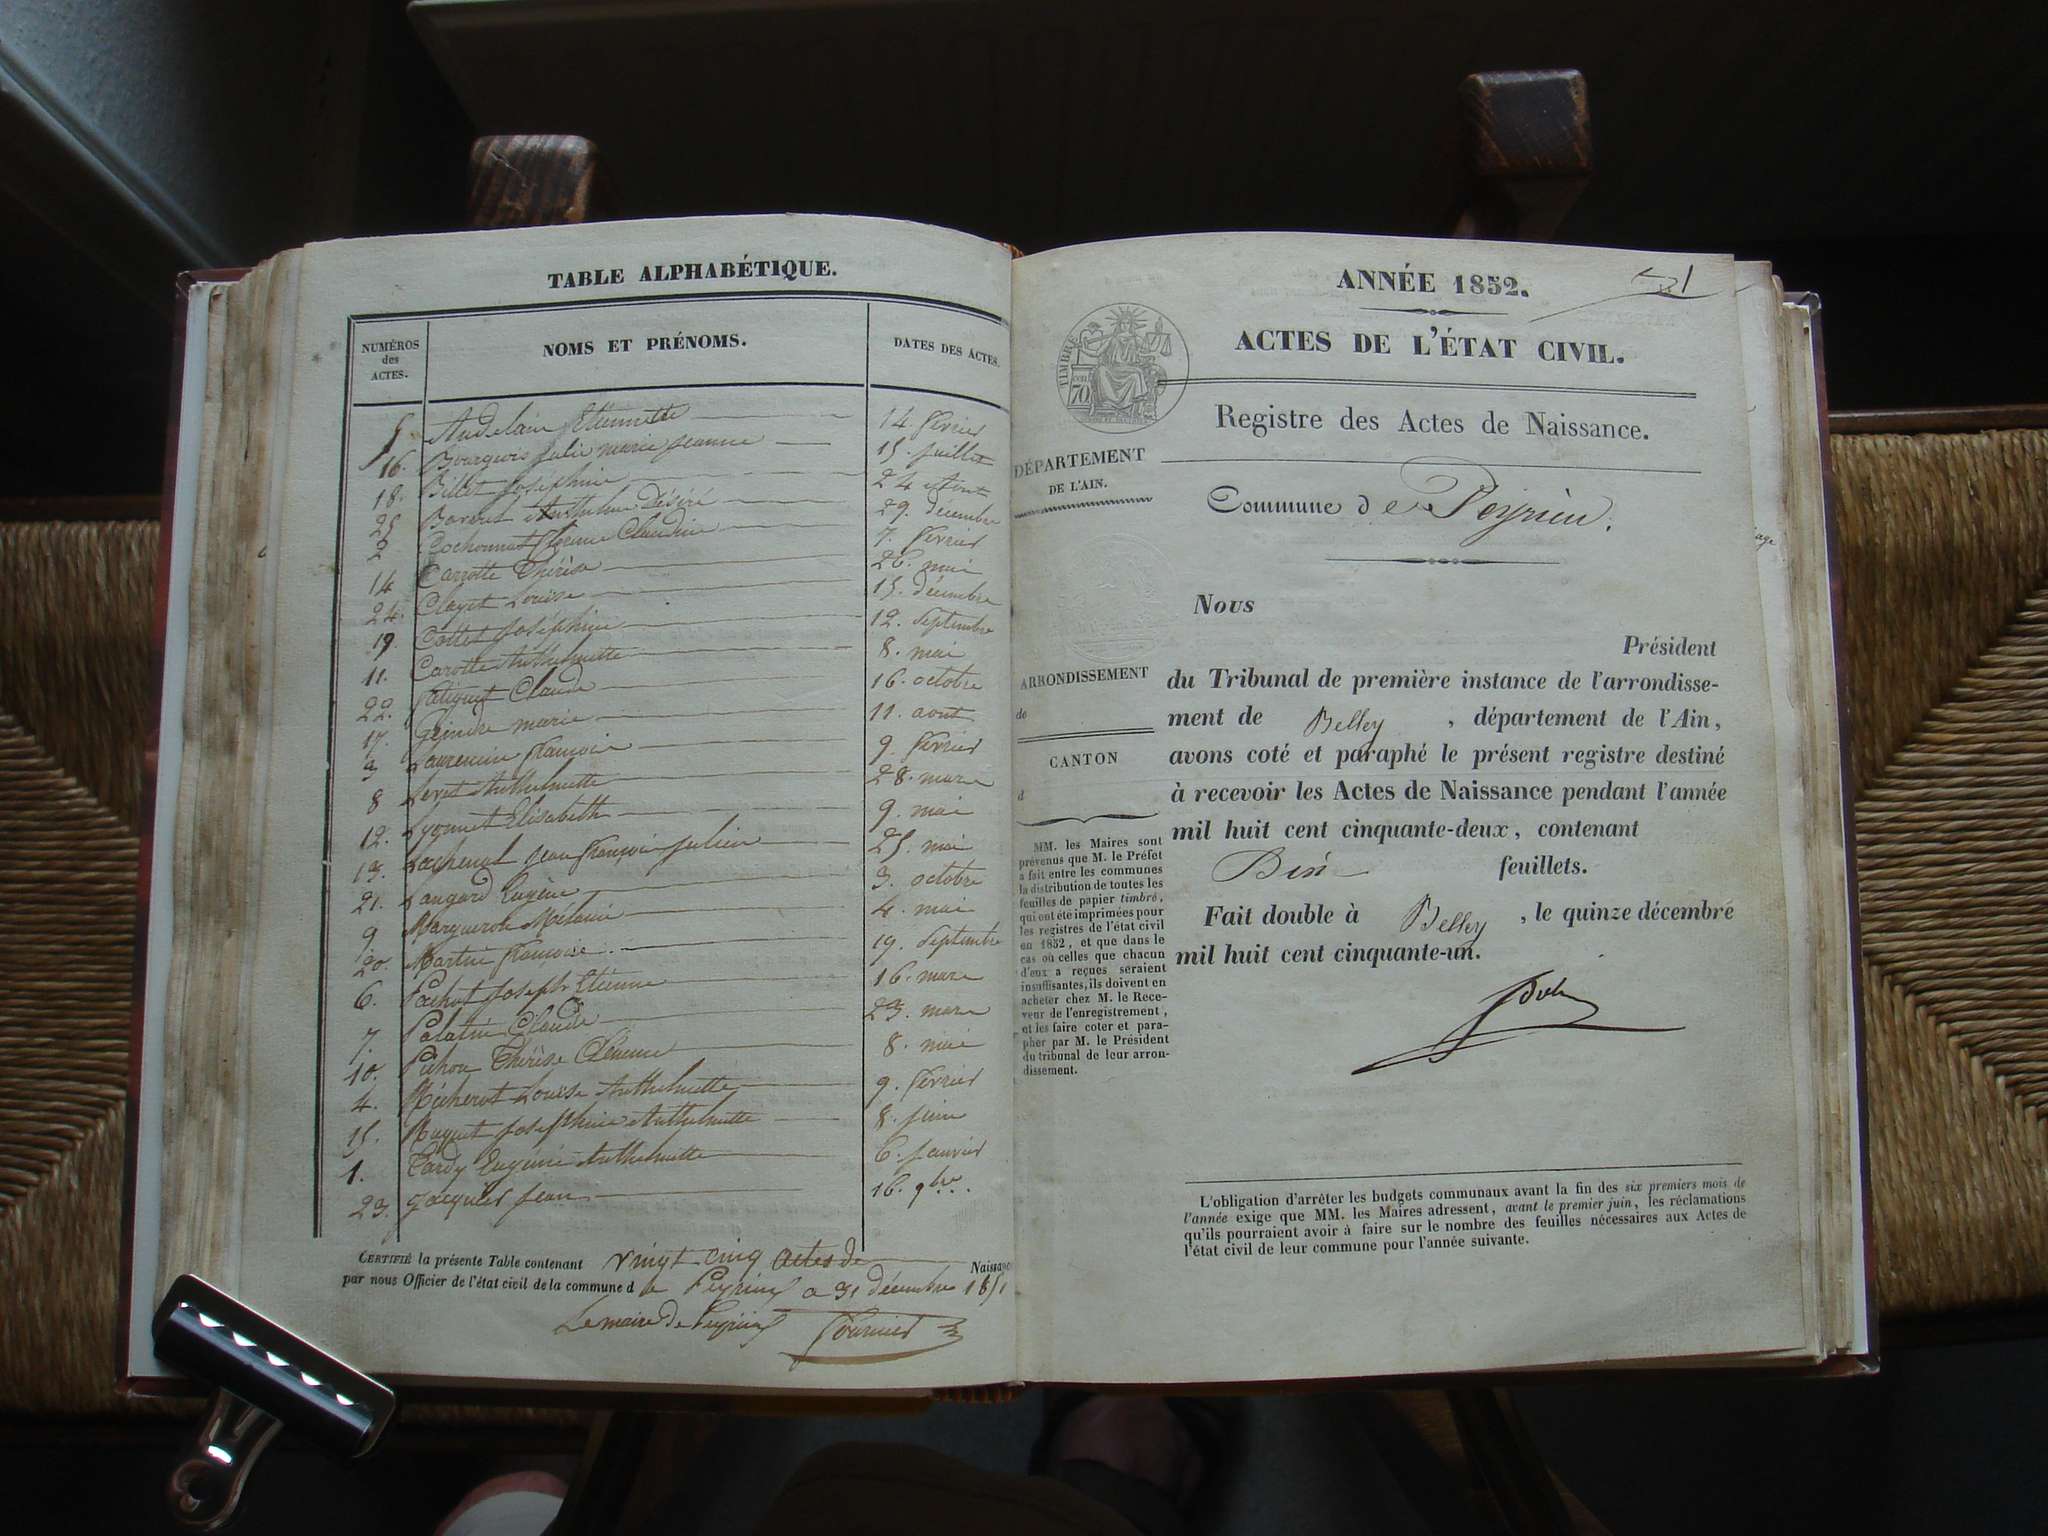 TABLE ALPHABÉTIQUE.
NUMÉROS
des
ACTES.
NOMS ET PRÉNOMS.
DATES DES ACTES.
5 Andelain Etiennette 14. février
16. Bourgeois Julie marie jeanne 15. juillet
18. Billet Joséphine 24 Aout
25 Anthelme Désiré 29. décembre
2 Cochonnat Claudine 7. février
14 Carrotte Thérèse 26. mai
24. Clayet Louise 15. décembre
19. Collet joséphine 12. septembre
11. Carotte Anthelmette 8. mai
22. Claude 16. octobre
17. marie 11. aout
3 François 9. février
8 Anthelmette 28. mars
12. Lyonnet Elisabeth 9. mai
13. Lachenal jean françois julien 25. mai
21. Eugène 3. octobre
9 Mélanie 4. mai
20. Martin françoise 19. septembre
6. Pochat joseph Etienne 16. mars
7. Palatin Claude 23. mars
10. Pichon Thérèse 8. mai
4. Louise Anthelmette 9. février
15. josephine Anthelmette 8. juin
1. Tardy Eugénie Anthelmette 6. janvier
23. Jacquier jean 16. 9bre.
CERTIFIÉ la présente Table contenant vingt-cinq actes de Naissance
par nous Officier de l'état civil de la commune d e Peyrieu a 31 décembre 1851
Le maire de Peyrieu
Fournier
ANNÉE 1852.
1
ACTES DE L'ÉTAT CIVIL.
TIMBRE
70
Registre des Actes de Naissance.
DÉPARTEMENT
DE L'AIN.
Commune d e Peyrieu.
Nous
Président
du Tribunal de première instance de l'arrondisse-
ment de Belley, département de l'Ain,
avons coté et paraphé le présent registre destiné
à recevoir les Actes de Naissance pendant l'année
mil huit cent cinquante-deux, contenant
feuillets.
Fait double à Belley, le quinze décembre
mil huit cent cinquante-un.
ARRONDISSEMENT
de
CANTON
d
MM. les Maires sont
prévenus que M. le Préfet
a fait entre les communes
la distribution de toutes les
feuilles de papier timbré,
qui ont été imprimées pour
les registres de l'état civil
en 1852, et que dans le
cas où celles que chacun
d'eux a reçues seraient
insuffisantes, ils doivent en
acheter chez M. le Rece-
veur de l'enregistrement,
et les faire coter et para-
pher par M. le Président
du tribunal de leur arron-
dissement.
L'obligation d'arrêter les budgets communaux avant la fin des six premiers mois de
l'année exige que MM. les Maires adressent, avant le premier juin, les réclamations
qu'ils pourraient avoir à faire sur le nombre des feuilles nécessaires aux Actes de
l'état civil de leur commune pour l'année suivante.